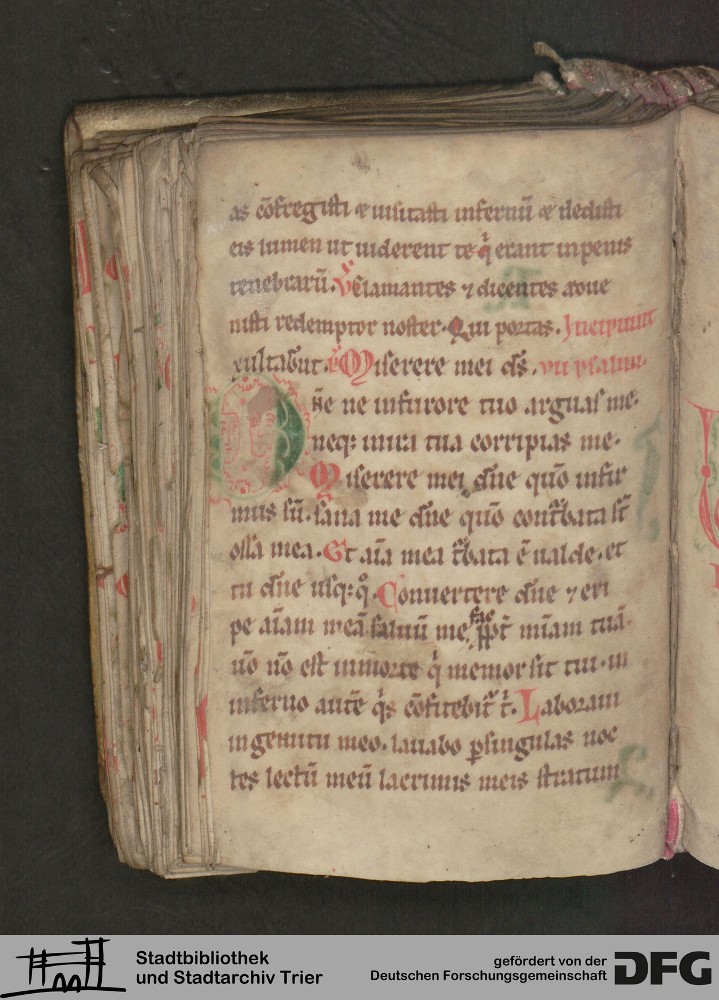 as cōfregisti ⁊ uisitasti infernū ⁊ dedisti
eis lumen ut uiderent te q̇ erant in penis
tenebrarū. V̄ Clamantes ⁊ dicentes adue
nisti redemptor noster. Qui portas. Incipiunt
xultabūt. Miserere mei ds̄. vii psalmi.
Dn̄e ne in furore tuo arguas me.
neq; in ira tua corripias me.
Miserere mei dn̄e qūo infir
mus sū. sana me dn̄e qūo contͣbata st̄
ossa mea. Et aīa mea tͣbata ē ualde. et
tu dn̄e usq; q̊. Conuertere dn̄e ⁊ eri
pe aīam meā saluū me fac ꝓpt̄ mīam tuā.
nō est in morte q̇ memor sit tui. in
inferno autē q̇s cōfitebit̄ ṫ. Laboraui
in gemitu meo. lauabo ꝑ singulas noc
tes lectū meū lacrimis meis stratum
Stadtbibliothek
und Stadtarchiv Trier
gefördert von der
Deutschen Forschungsgemeinschaft
DFG